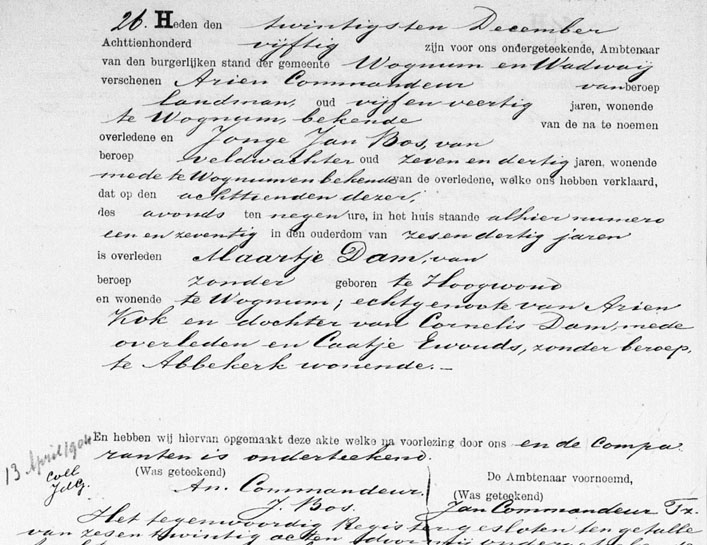 26. Heden den twintigsten December
Achttienhonderd vijftig zijn voor ons ondergeteekende, Ambtenaar
van den burgerlijken stand der gemeente Wognum en Wadway
verschenen Arien Commandeur van beroep
landman, oud vijf en veertig jaren, wonende
te Wognum, bekende van de na te noemen
overledene en Jonge Jan Bos, van
beroep veldwachter oud zeven en dertig jaren, wonende
mede te Wognum en bekende van de overledene, welke ons hebben verklaard,
dat op den achttienden dezer,
des avonds ten negen ure, in het huis staande alhier numero
een en zeventig in den ouderdom van zes en dertig jaren
is overleden Maartje Dam, van
beroep zonder geboren te Hoogwoud
en wonende te Wognum; echtgenoote van Arien
Kok en dochter van Cornelis Dam, mede
overleden en Caatje Ewouds, zonder beroep,
te Abbekerk wonende. —
En hebben wij hiervan opgemaakt deze akte welke na voorlezing door ons en de Compa-
ranten is onderteekend.
13 April/904
Coll
JdG.
(Was geteekend)
An. Commandeur.
J. Bos.
De Ambtenaar voornoemd,
(Was geteekend)
Jan Commandeur Tz.
Het tegenwoordig Register gesloten ten getalle
van zes en twintig acten door mij